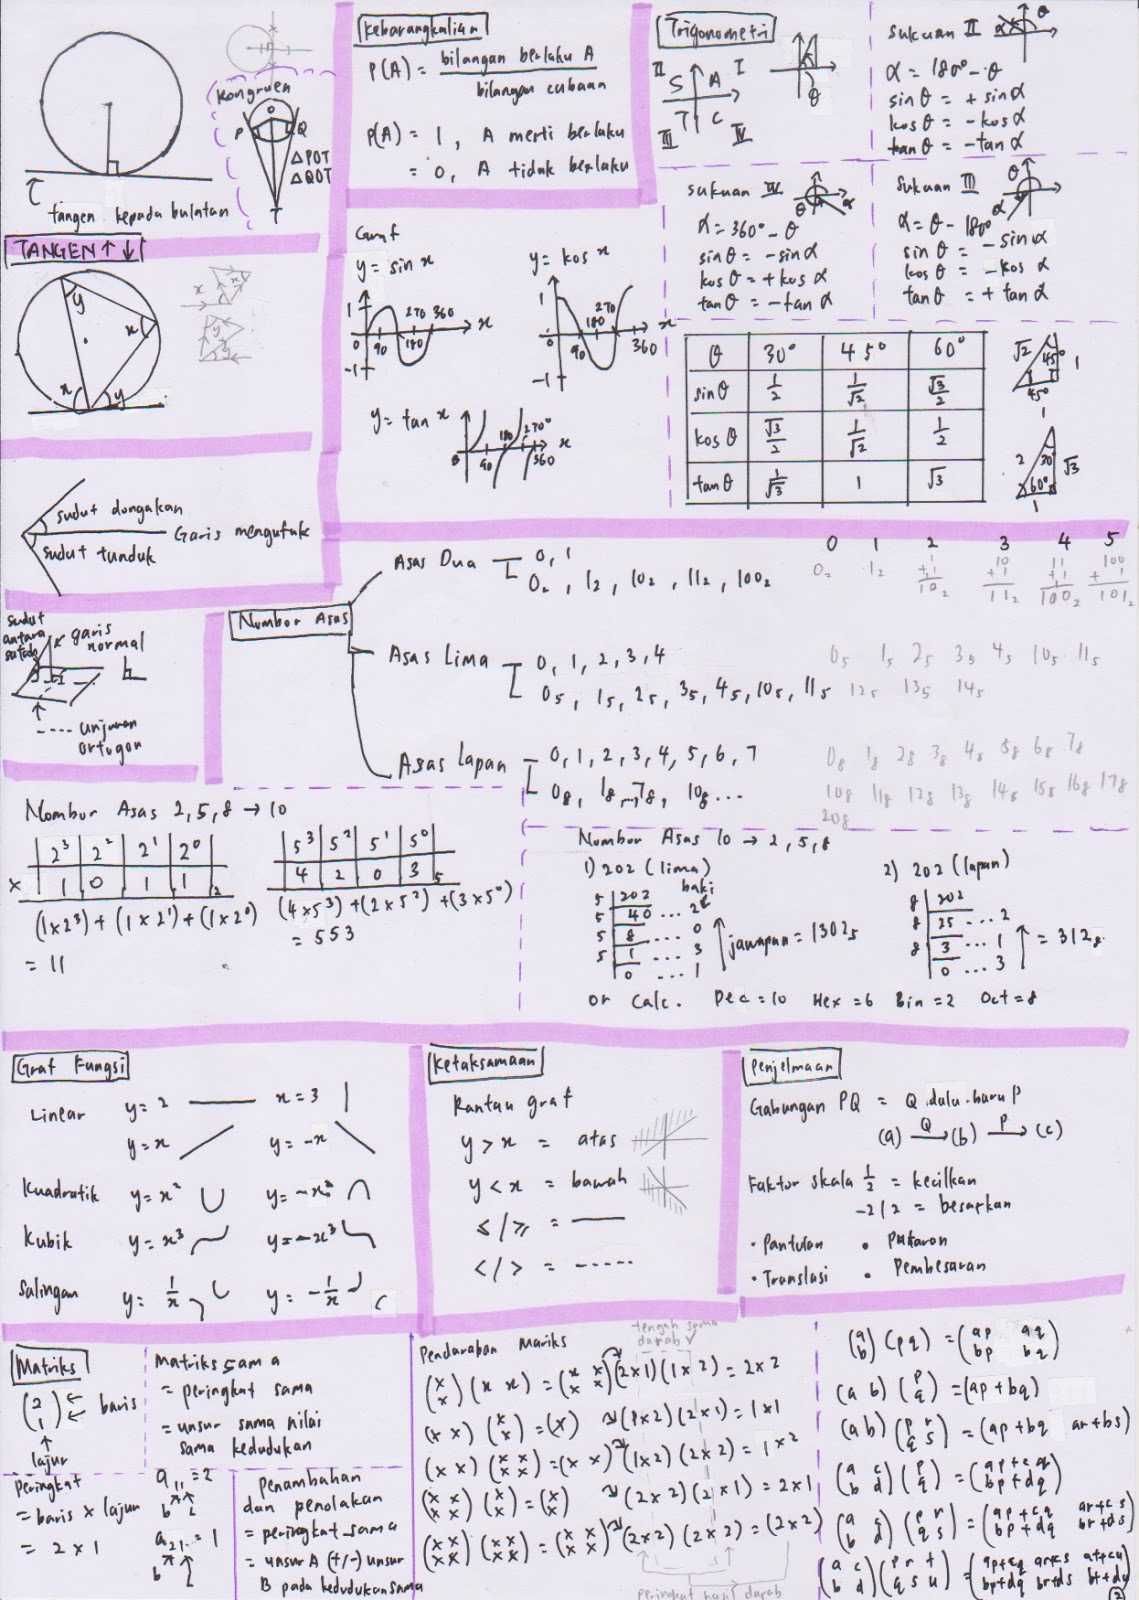 Kongruen
O
P Q
△POT
△QOT
T
tangen kepada bulatan
TANGEN ↑↓
y
x
x y
sudut dongakan
Garis mengufuk
sudut tunduk
sudut
antara
garis
normal
---- unjuran
ortogon
Kebarangkalian
P(A) = bilangan berlaku A
bilangan cubaan
P(A) = 1, A mesti berlaku
= 0, A tidak berlaku
Graf
y = sin x
1
0 90 180 270 360 x
-1
y = kos x
1
0 90 180 270 360 x
-1
y = tan x
0 90 180 270° 360 x
Trigonometri
II I
S A
T C
III IV
θ
sukuan II
α θ
α = 180° - θ
sin θ = + sin α
kos θ = - kos α
tan θ = - tan α
sukuan IV
θ α
α = 360° - θ
sin θ = - sin α
kos θ = + kos α
tan θ = - tan α
sukuan III
θ
α
α = θ - 180°
sin θ = - sin α
kos θ = - kos α
tan θ = + tan α
θ 30° 45° 60°
sin θ 1/2 1/√2 √3/2
kos θ √3/2 1/√2 1/2
tan θ 1/√3 1 √3
√2 45° 1
45°
1
2 30° √3
60°
1
Nombor Asas
Asas Dua 0, 1
0₂, 1₂, 10₂, 11₂, 100₂
0 1 2 3 4 5
0₂ 1₂ 1 10 11 100
+1 +1 +1 + 1
10₂ 11₂ 100₂ 101₂
Asas Lima 0, 1, 2, 3, 4
0₅, 1₅, 2₅, 3₅, 4₅, 10₅, 11₅ 12₅ 13₅ 14₅
0₅ 1₅ 2₅ 3₅ 4₅ 10₅ 11₅
Asas Lapan 0, 1, 2, 3, 4, 5, 6, 7
0₈, 1₈ ... 7₈, 10₈ ...
0₈ 1₈ 2₈ 3₈ 4₈ 5₈ 6₈ 7₈
10₈ 11₈ 12₈ 13₈ 14₈ 15₈ 16₈ 17₈
20₈
Nombor Asas 2, 5, 8 → 10
2³ 2² 2¹ 2⁰
x 1 0 1 1 ₂
(1x2³) + (1x2¹) + (1x2⁰)
= 11
5³ 5² 5¹ 5⁰
4 2 0 3 ₅
(4x5³) + (2x5²) + (3x5⁰)
= 553
Nombor Asas 10 → 2, 5, 8
1) 202 (lima)
baki
5 202
5 40 ... 2
5 8 ... 0
5 1 ... 3
0 ... 1
jawapan = 1302₅
2) 202 (lapan)
8 202
8 25 ... 2
8 3 ... 1
0 ... 3
= 312₈
or Calc. Dec = 10 Hex = 6 Bin = 2 Oct = 8
Graf Fungsi
Linear y = 2 x = 3
y = x y = -x
Kuadratik y = x² y = -x²
Kubik y = x³ y = -x³
Salingan y = 1/x y = -1/x
Ketaksamaan
Rantau graf
y > x = atas
y < x = bawah
≤ / ≥ = ——
< / > = -----
Penjelmaan
Gabungan PQ = Q dulu baru P
(a) Q→ (b) P→ (c)
Faktor skala 1/2 = kecilkan
-2/2 = besarkan
· Pantulan • Putaran
· Translasi • Pembesaran
Matriks
(2 1) ← baris
↑
lajur
Peringkat
= baris x lajur
= 2 x 1
Matriks sama
= peringkat sama
= unsur sama nilai
sama kedudukan
a₁₁ = 2
b L
a₂₁ = 1
b L
Penambahan
dan penolakan
= peringkat sama
= unsur A (+/-) unsur
B pada kedudukan sama
Pendaraban Matriks
tengah sama
darab ✓
(x x) (x x) = (x x x x) (2x1)(1x2) = 2x2
(x x) (x x) = (x) (1x2)(2x1) = 1x1
(x x) (x x x x) = (x x) (1x2)(2x2) = 1x2
(x x x x) (x x) = (x x) (2x2)(2x1) = 2x1
(x x x x) (x x x x) = (x x x x) (2x2)(2x2) = (2x2)
peringkat hasil darab
(a b) (p q) = (ap aq bp bq)
(a b) (p q) = (ap+bq)
(a b) (p r q s) = (ap+bq ar+bs)
(a c b d) (p q) = (ap+cq bp+dq)
(a c b d) (p r q s) = (ap+cq ar+cs bp+dq br+ds)
(a c b d) (p r t q s u) = (ap+cq ar+cs at+cu bp+dq br+ds bt+du)
2